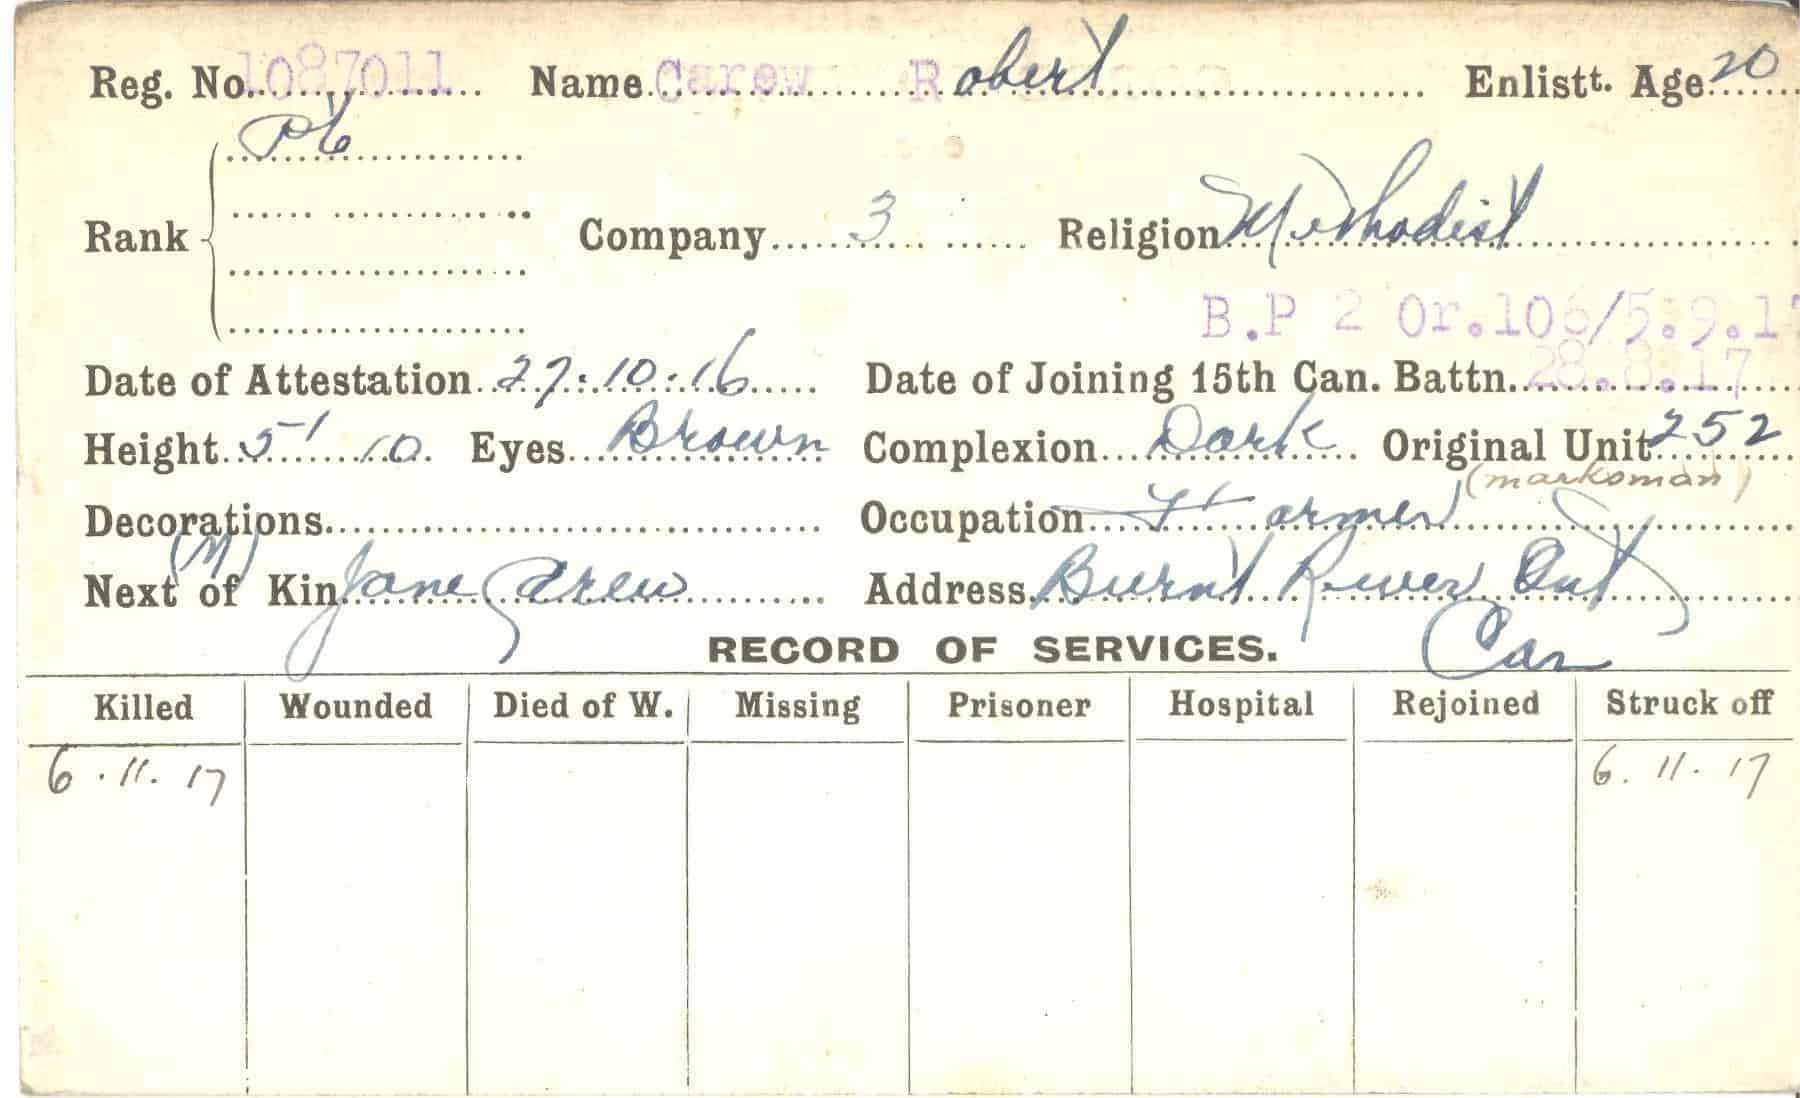 Reg. No. 1087011 Name Carew Robert Enlistt. Age 20
Pte
Rank Company 3 Religion Methodist
B.P 2 Or.106/5.9.17
Date of Attestation 27.10.16 Date of Joining 15th Can. Battn. 28.8.17
Height 5' 10 Eyes Brown Complexion Dark Original Unit 252
(marksman)
Decorations Occupation Farmer
(M)
Next of Kin Jane Carew Address Burnt River Ont
Can
RECORD OF SERVICES.
Killed Wounded Died of W. Missing Prisoner Hospital Rejoined Struck off
6.11.17 6.11.17